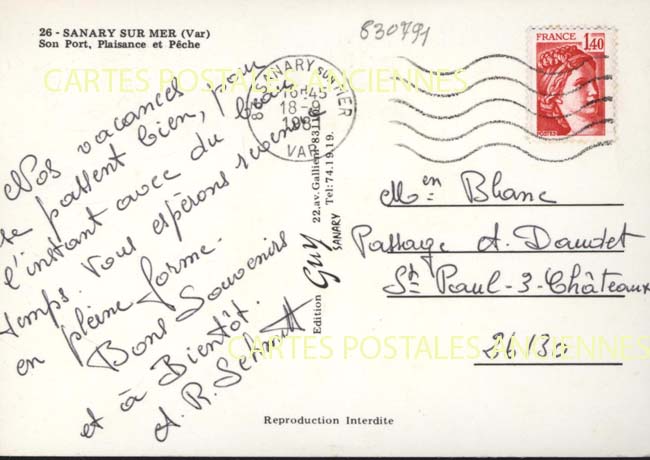 26 - SANARY SUR MER (Var)
Son Port, Plaisance et Pêche
830791
FRANCE
1,40
CARTES POSTALES ANCIENNES
SANARY-SUR-MER
16H45
18-
VAR
Nos vacances
se passent bien, pour
l'instant avec du beau
temps. Vous espérons revenir
en pleine forme.
Bons Souvenirs
et à Bientôt.
A. R.
Edition Guy SANARY
22, av. Gallieni 83110
Tel: 74.19.19.
Men Blanc
Passage A. Daudet
St Paul-3-Châteaux
26130
CARTES POSTALES ANCIENNES
Reproduction Interdite